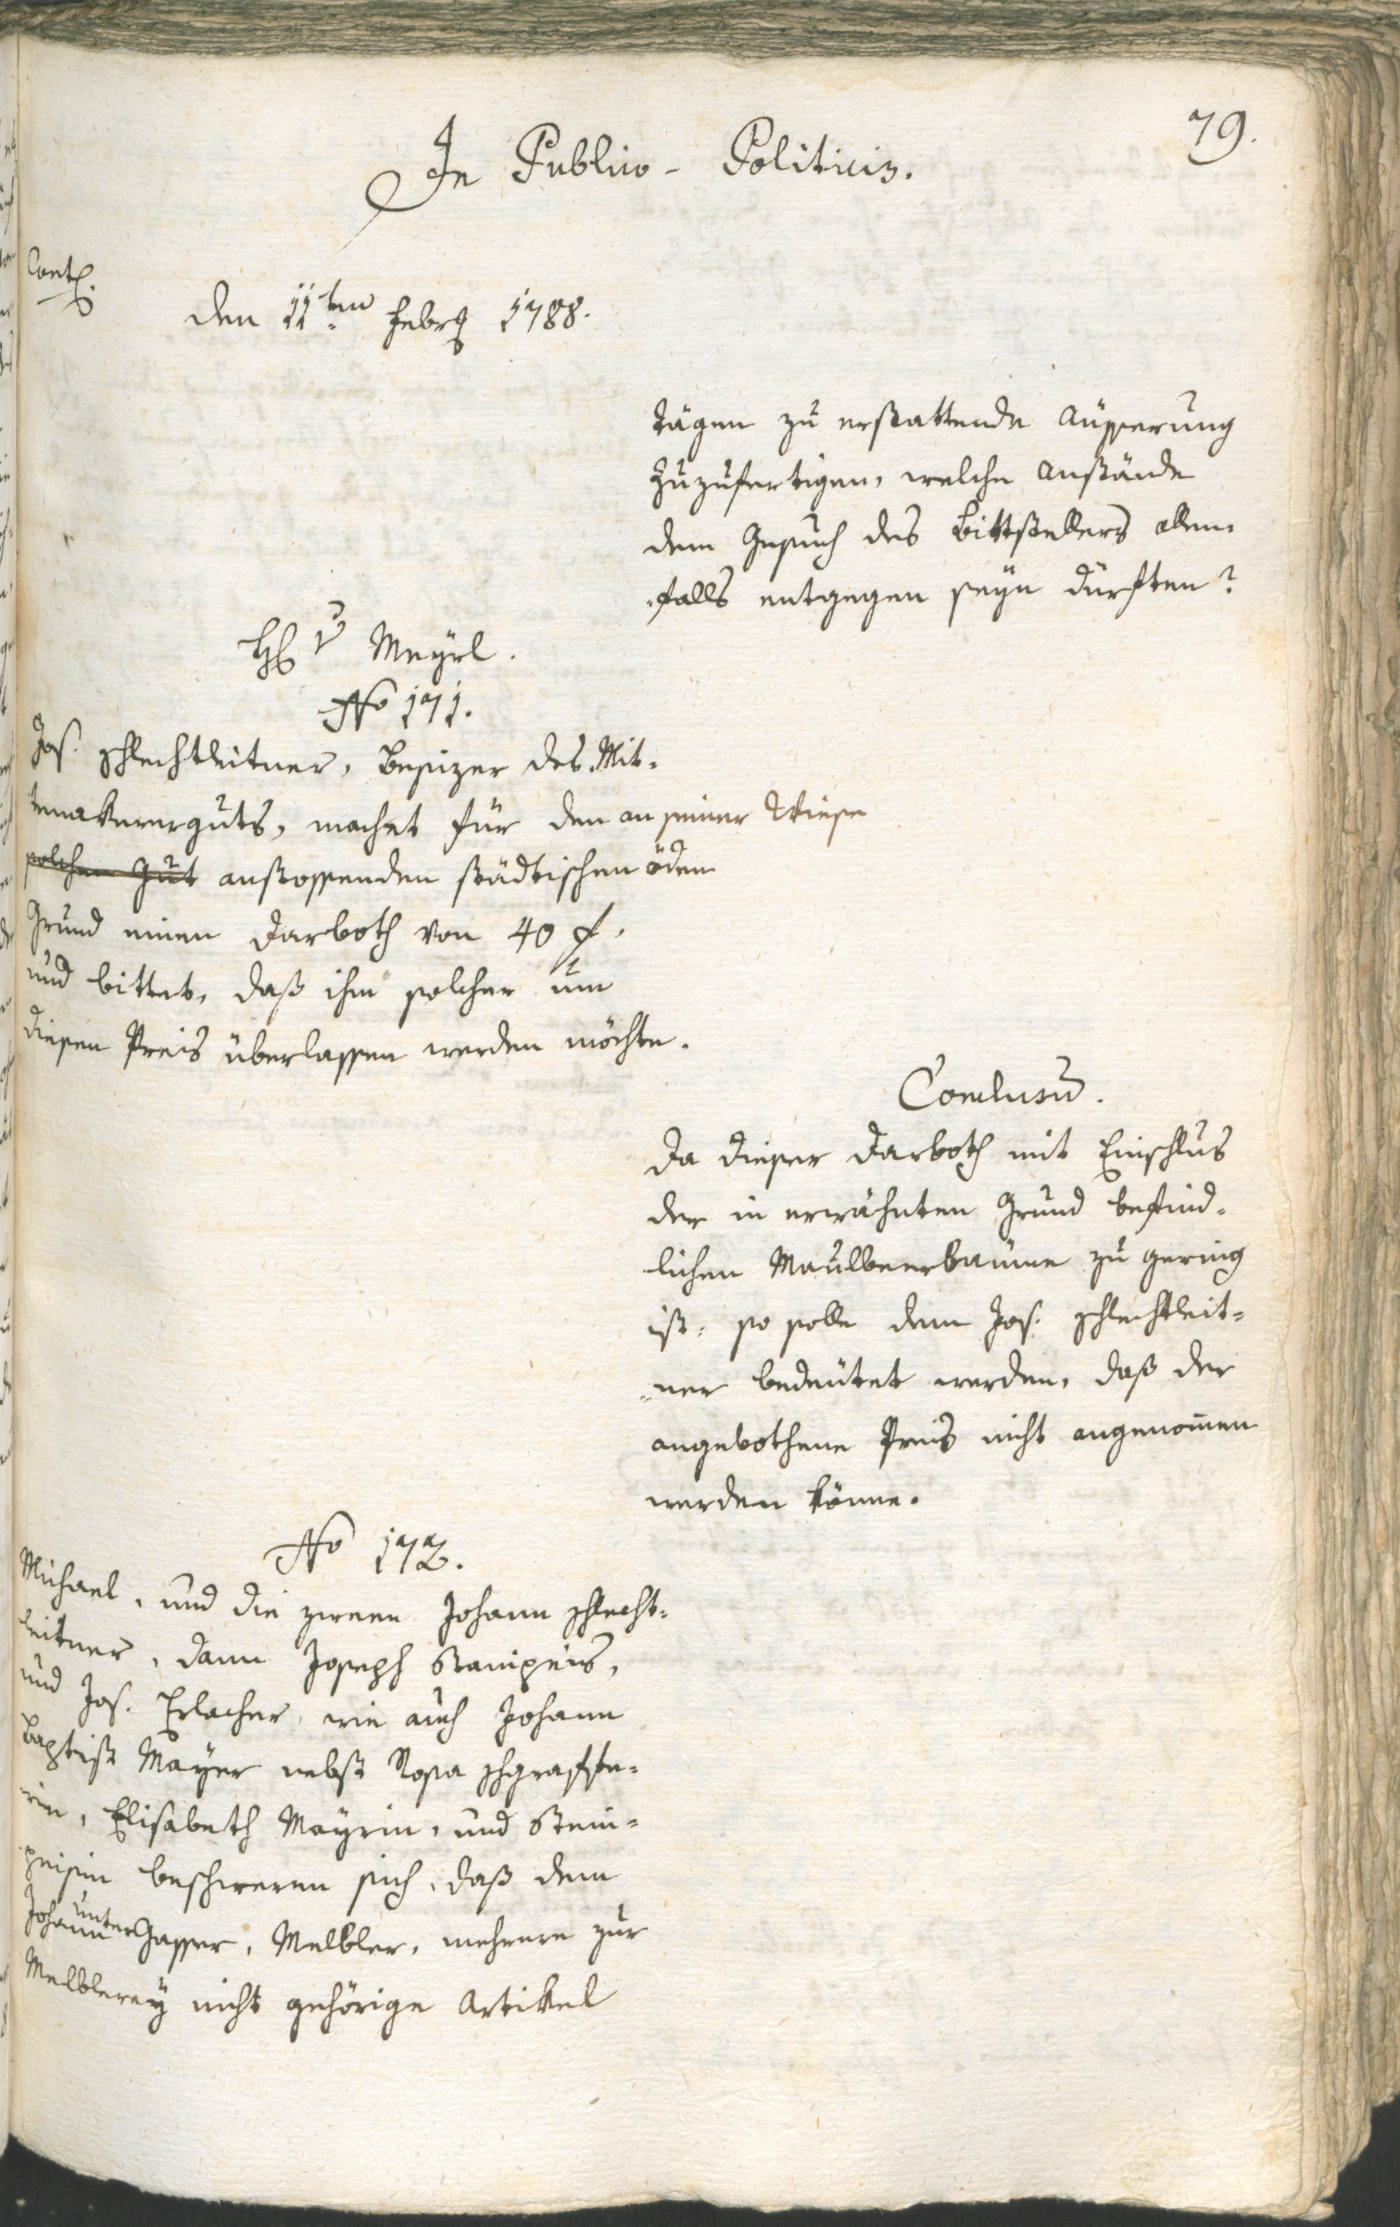 79.
In Publico - Politicis.
Cont
den 11ten Febr 1788.
Tägen zu erstattende Äusserung
Zuzufertigen, welche Anstände
dem Gesuch des Bittstellers allen-
-falls entgegen seyn dürften?
H v Meyrl.
No 171.
Jos. Schlechtleitner, Besizer des Mit-
terackererguts, machet für den an seiner Wiese
solchen Gut anstossenden städtischen öden
Grund einen Darboth von 40 f.
und bittet, daß ihm solcher um
diesen Preis überlassen werden möchte.
Conclusū.
Da dieser Darboth mit Einschlus
der in erwähnten Grund befind-
lichen Maulbeerbäume zu gering
ist, so solle dem Jos. Schlechtleit-
-ner bedeutet werden, daß der
angebothene Preis nicht angenom̄en
werden könne.
No 172.
Michael, und die zween Johann Schlecht-
leitner, dann Joseph
und Jos. Erlacher, wie auch Johann
Baptist Mayer nebst Rosa Schgraffe-
rin, Elisabeth Mayrin, und Stein-
beschweren sich, daß dem
Johann Untergasser, Melbler, mehrere zur
Melblerey nicht gehörige Artikel